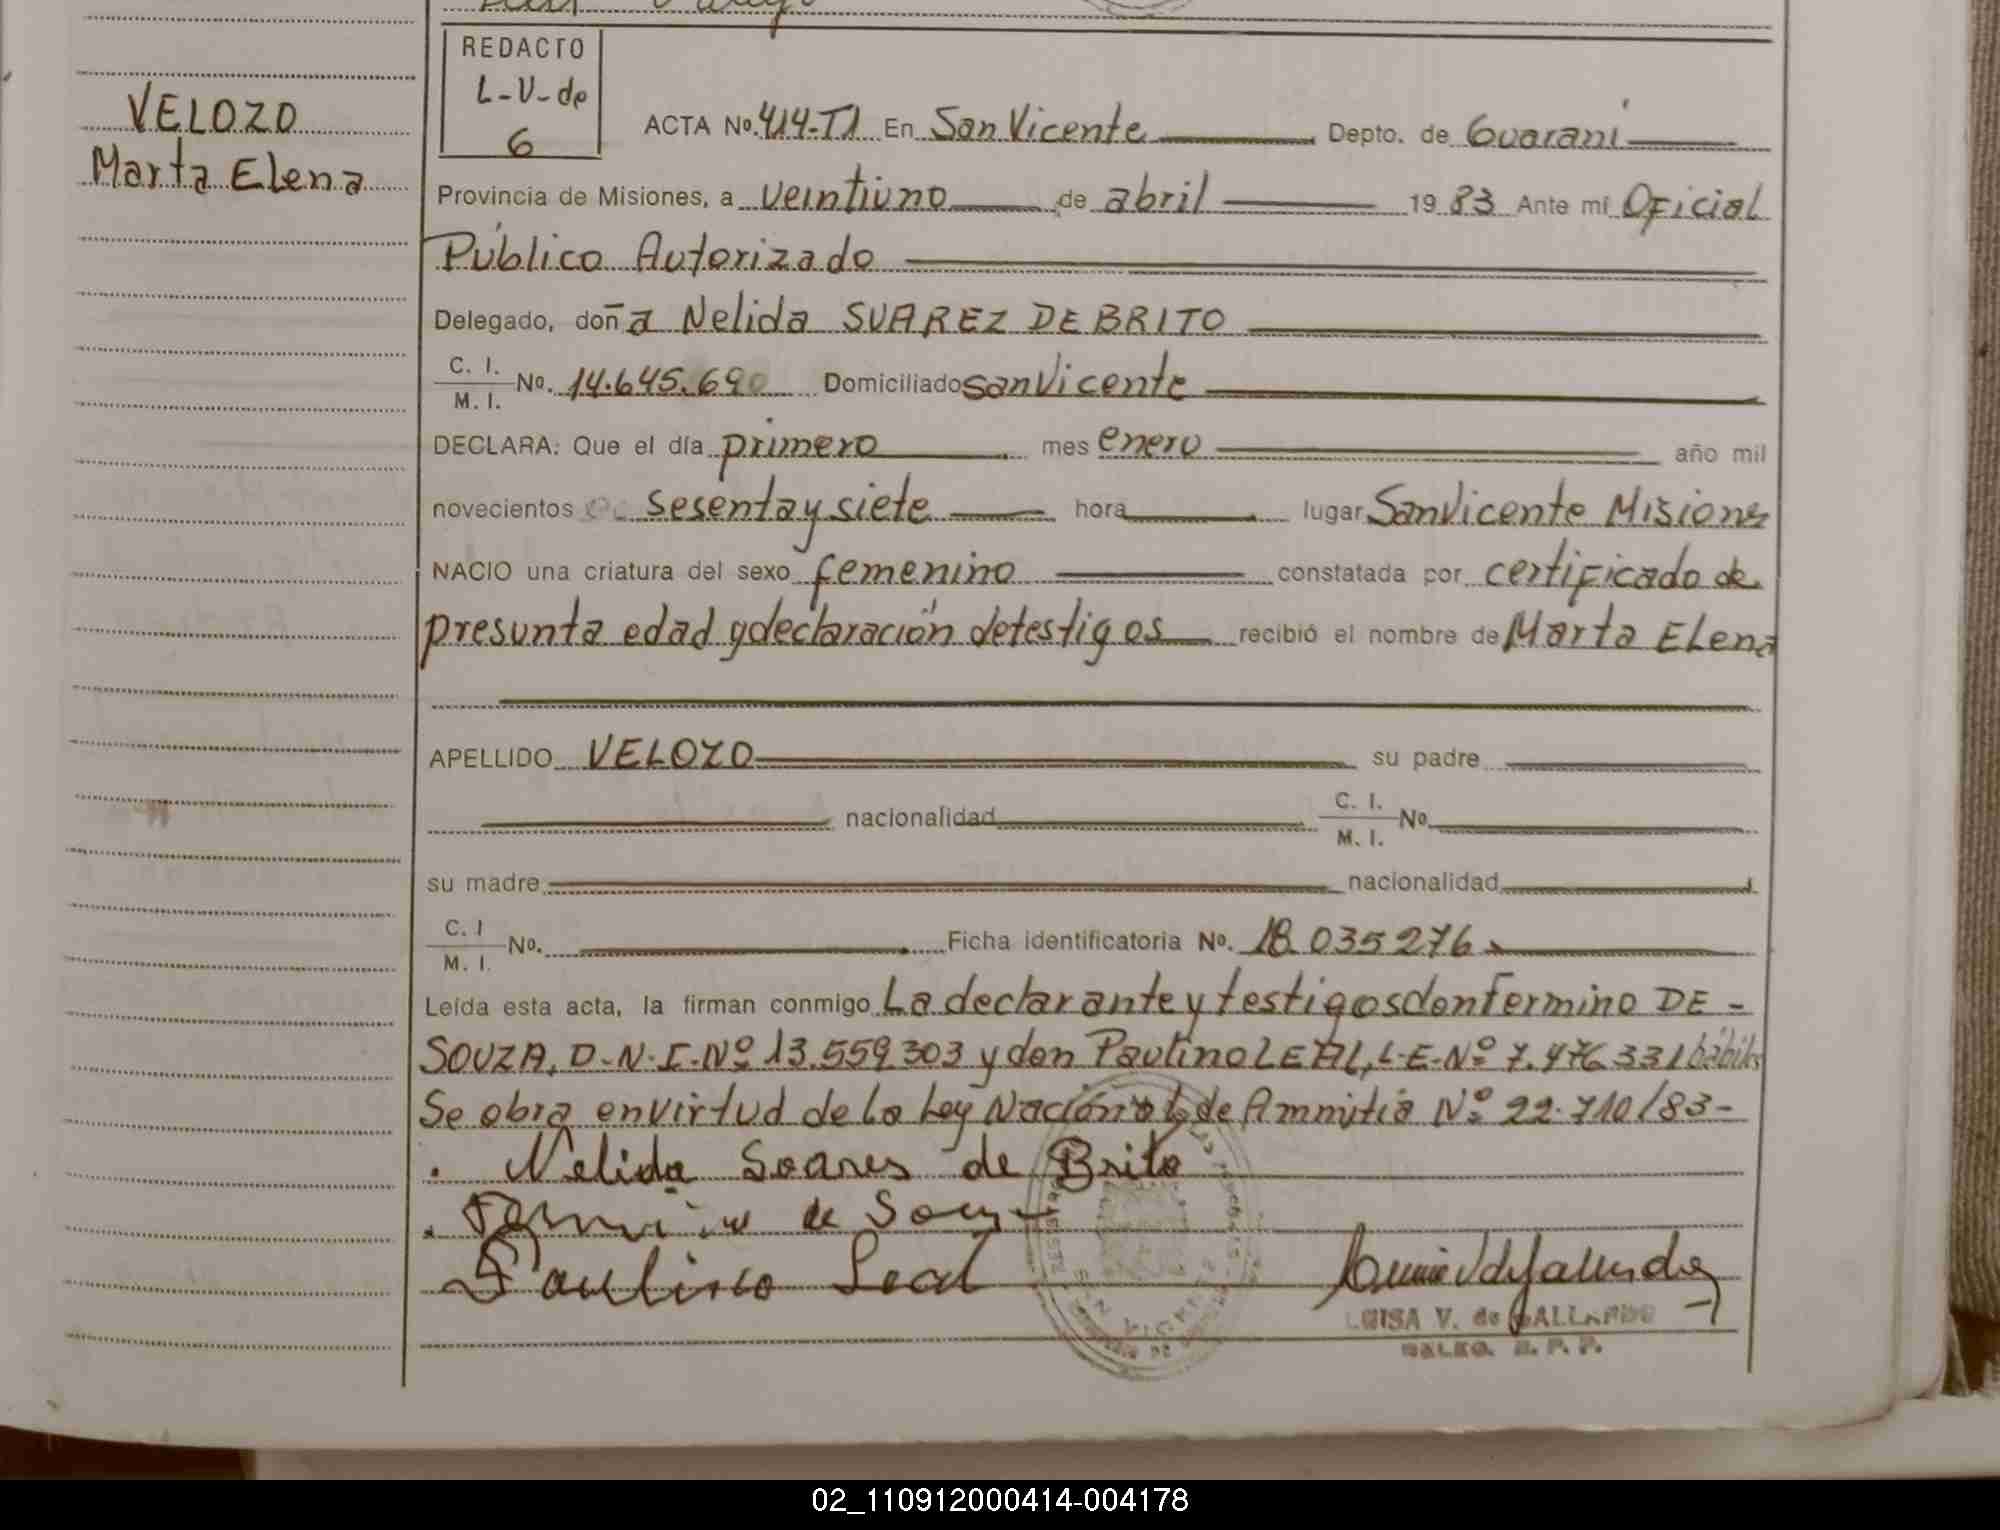 REDACTO
L-V-de
6
VELOZO
Marta Elena
ACTA Nº. 414-T1 En San Vicente Depto. de Guaraní
Provincia de Misiones, a veintiuno de abril 1983 Ante mí Oficial
Público Autorizado
Delegado, doña Nelida SUAREZ DE BRITO
C. I.
M. I. Nº. 14.645.690 Domiciliado San Vicente
DECLARA: Que el día primero mes enero año mil
novecientos sesenta y siete hora lugar San Vicente Misiones
NACIO una criatura del sexo femenino constatada por certificado de
presunta edad y declaración de testigos recibió el nombre de Marta Elena
APELLIDO VELOZO su padre
nacionalidad C. I.
M. I. Nº
su madre nacionalidad
C. I
M. I. Nº. Ficha identificatoria Nº. 18.035276
Leída esta acta, la firman conmigo La declarante y testigos don Fermino DE-
SOUZA, D-N-I-Nº 13.559.303 y don Paulino LEAL, L-E-Nº 7.476.331 hábiles
Se obra en virtud de la Ley Nacional de Amnitia Nº 22.710/83-
Nelida Soares de Brito
de Souza
Paulino Leal
LUISA V. de GALLARDO
02_110912000414-004178